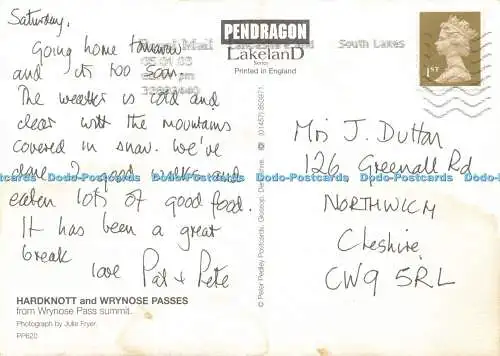 Saturday.
Going home tomorrow
and it's too soon.
The weather is cold and
clear with the mountains
covered in snow. We've
done 2 good walks and
eaten lots of good food.
It has been a great
break
love Pat + Pete
HARDKNOTT and WRYNOSE PASSES
from Wrynose Pass summit.
Photograph by Julie Fryer.
PP620
PENDRAGON
LakelanD
Series
Printed in England
© Peter Pedley Postcards, Glossop, Derbyshire. (01457)
Royal Mail
South Lakes
1ST
Mrs J. Dutton
126 Greenall Rd
NORTHWICH
Cheshire
CW9 5RL
Dodo-Postcards Dodo-Postcards Dodo-Postcards Dodo-Postcards Dodo-Postcards